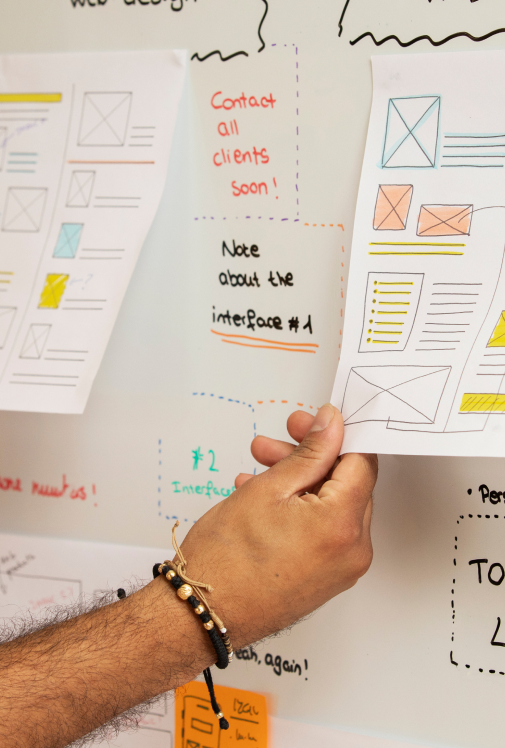 web design
Contact
all
clients
soon!
Note
about the
interface #1
#2
Interface
• Per
TO
L
eah, again!